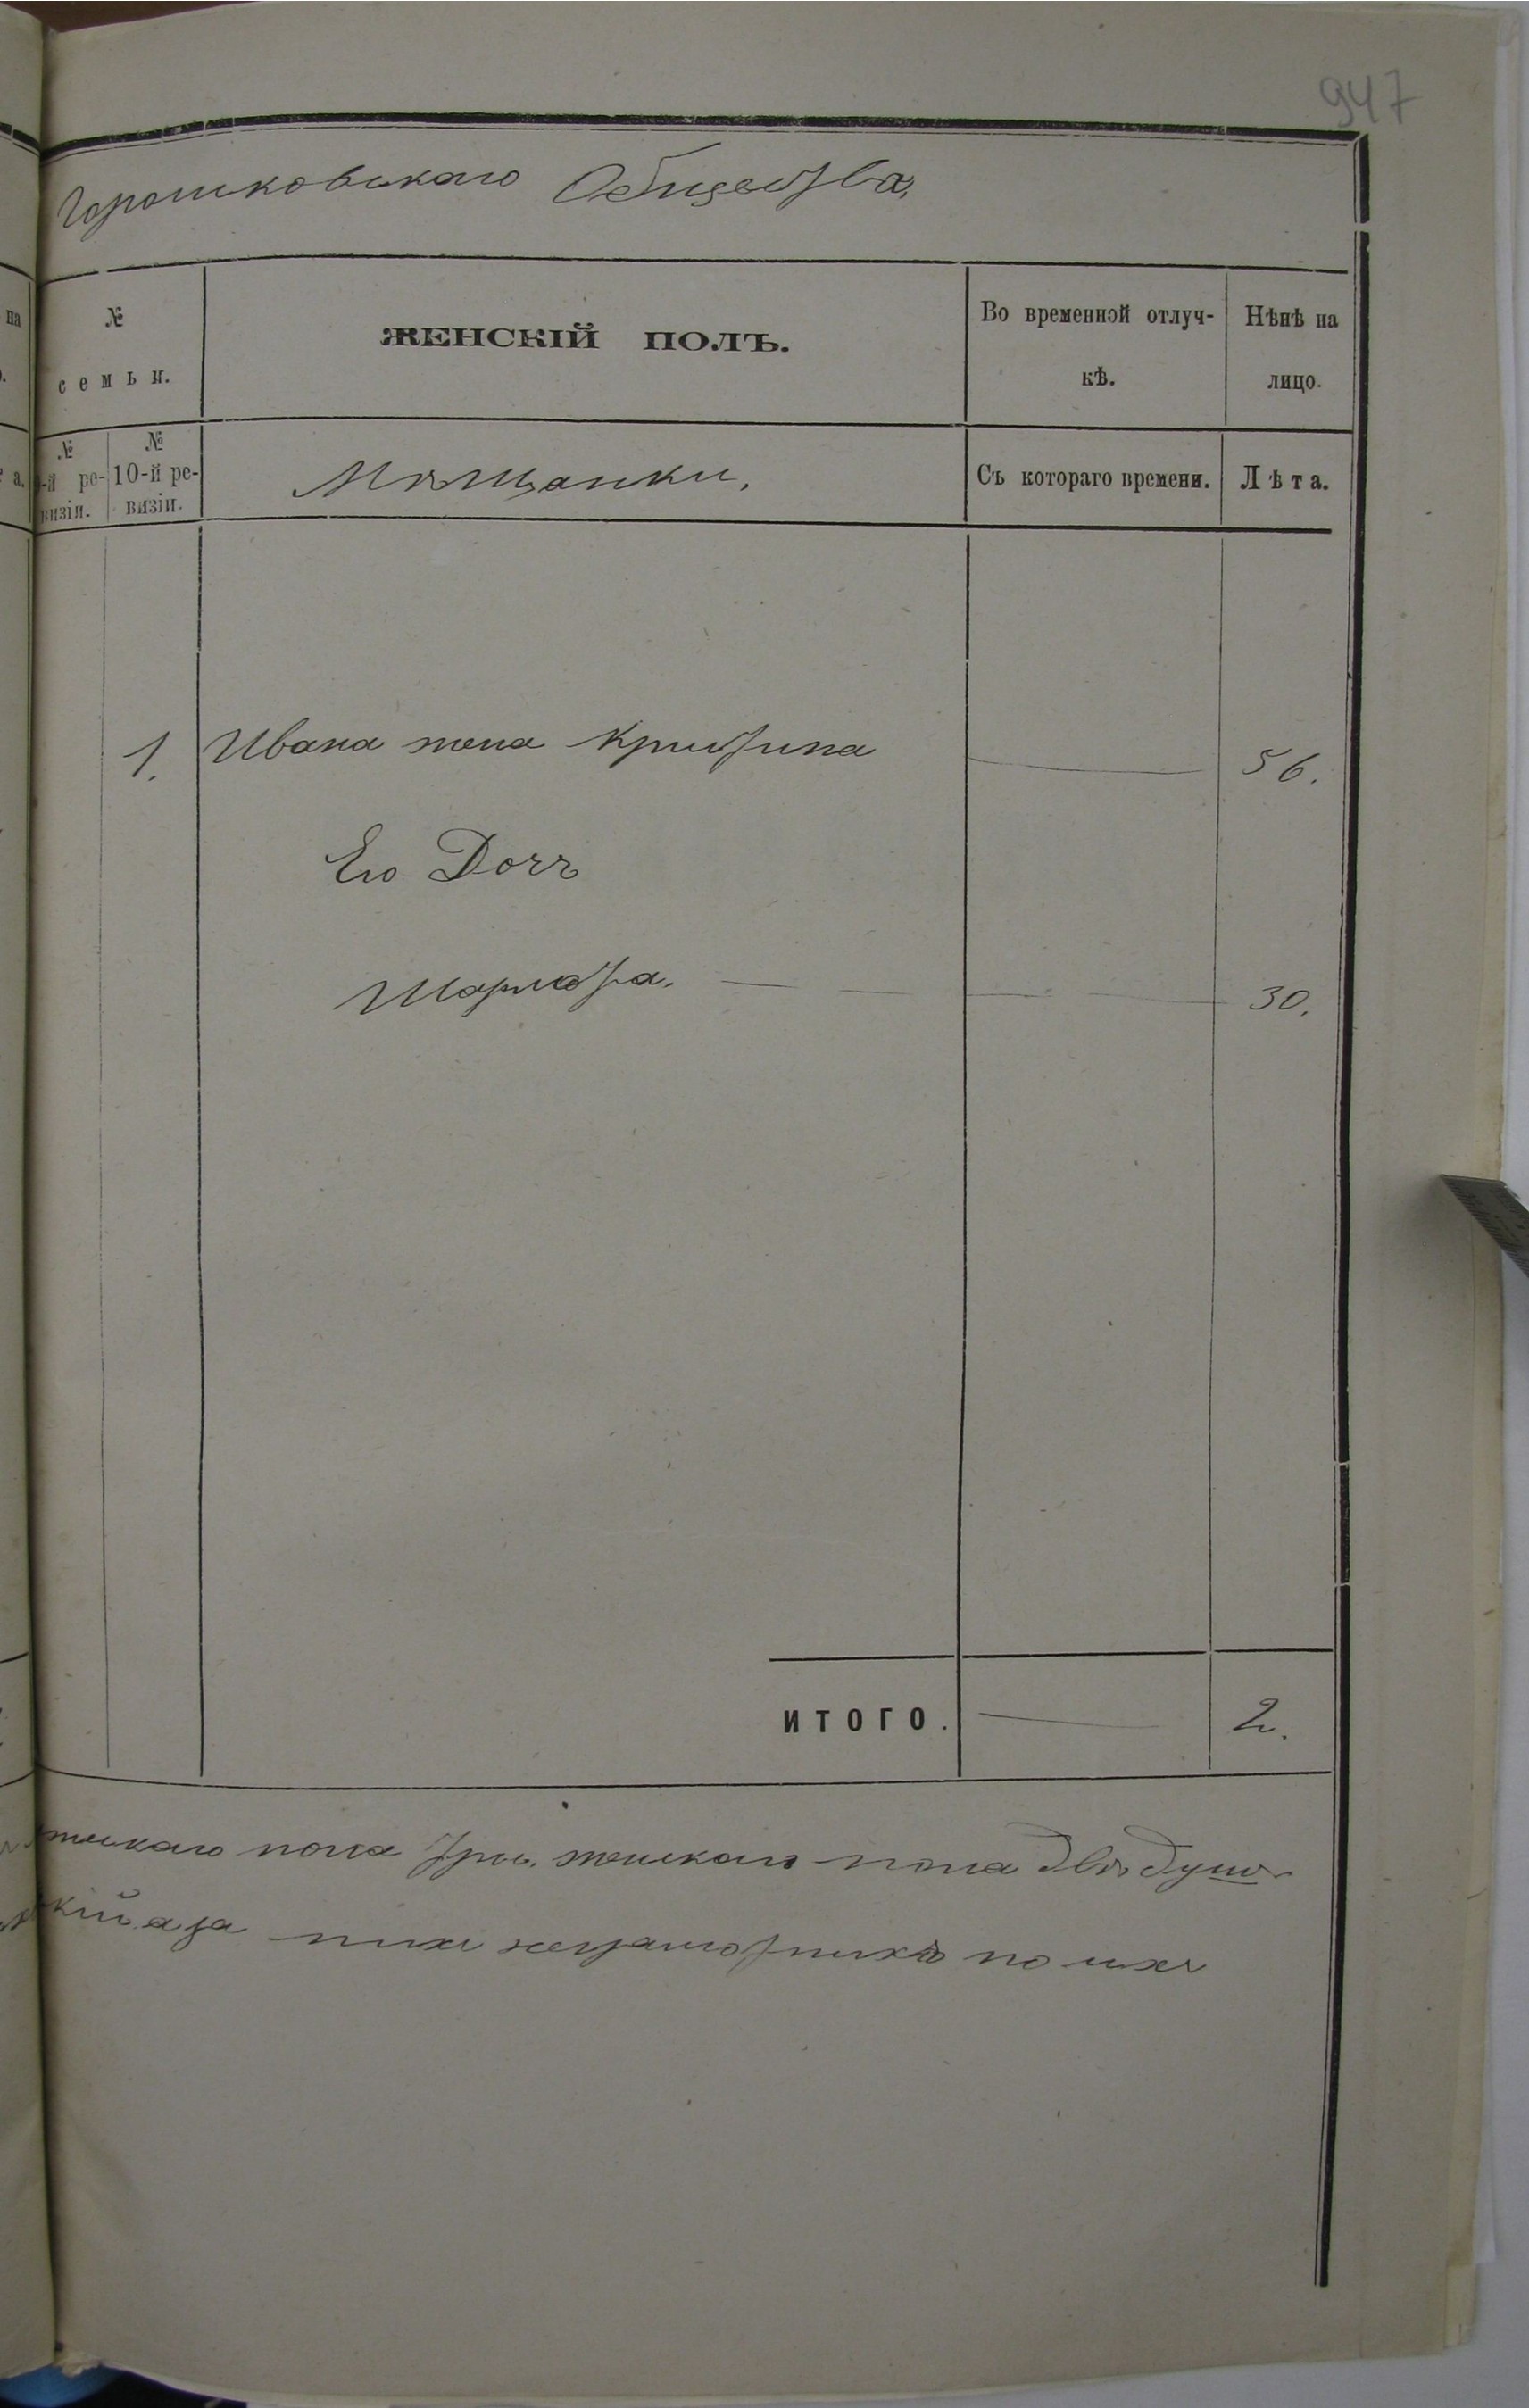 947
Горошковскаго Общества,
на
№
семьи.
ЖЕНСКІЙ ПОЛЪ.
Во временной отлуч-
кѣ.
Нѣнѣ на
лицо.
№
-й ре-
визіи.
№
10-й ре-
визіи.
Мѣщанки.
Съ котораго времени.
Лѣта.
1. Ивана жена Кристина — 56.
Его Дочь
Шарлота. — — — — 30.
ИТОГО. — 2.
жескаго пола три. женскаго пола двѣ душ
кій а за по ихъ